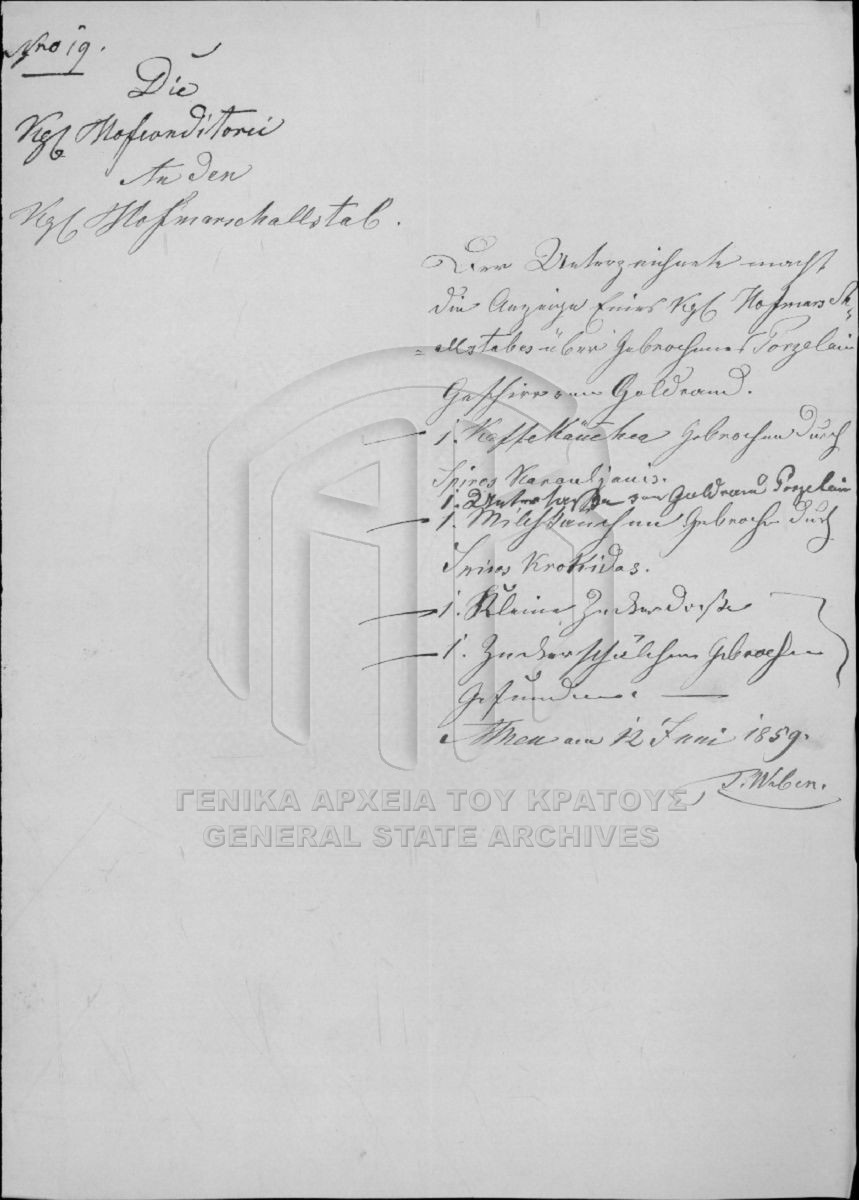 Nro 19.
Die
Kgl Hofconditorei
An den
Kgl Hofmarschallstab.
Der Unterzeichnete macht
die Anzeige Eines Kgl Hofmarsch=
=allstabes über Gebrochenes Porzelain
Geschirr von Goldrand.
1. Kaffekänchen Gebrochen durch
Spiros Karauljanis.
1. Untertasse von Goldrand Porzelain
1. Milchkänchen Gebrochen durch
Spiros Krokidas.
1. Kleine Zuckerdose
1. Zuckerschälchen Gebrochen
Gefunden.
Athen am 12 Juni 1859.
T. Weber.
ΓΕΝΙΚΑ ΑΡΧΕΙΑ ΤΟΥ ΚΡΑΤΟΥΣ
GENERAL STATE ARCHIVES